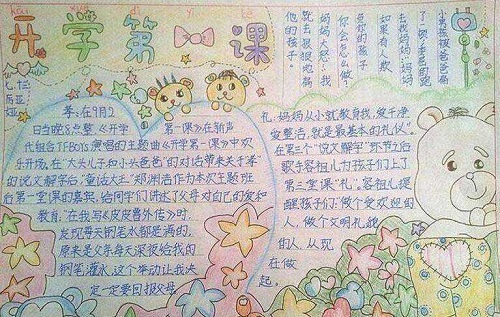 开学第课
小男孩被爸爸
了一顿,委屈的跑
去找妈妈:妈妈
如果有人欺
负你的孩子
你会怎么做?
妈妈大怒:我
就去狠狠地揍
他的孩子。
孝:在9月2
日当晚8点整《开学 第一课》在新声
代组合TFBOYS演唱的主题曲《开学第一课》中欢
乐开场,在"大头儿子和小头爸爸"的对话带来关于孝
的说文解字后,"童话大王"郑渊洁作为本次主题班
后第一堂课的嘉宾,给同学们讲述了父母对自己的爱和
教育."在我写《皮皮鲁外传》时.
发现每天钢笔水都是满的,
原来是父亲每天深夜给我的
钢笔灌水,这个举动让我决
定一定要回报父母
礼,妈妈从小就教育我,爱干净
爱整洁,就是最基本的礼仪".
在第三个"说文解字"环节之后
歌手容祖儿为孩子们上了
第三堂课"礼".容祖儿提
醒孩子们:做个受欢迎的
人,做个文明礼貌
的人,从现
在做
起.